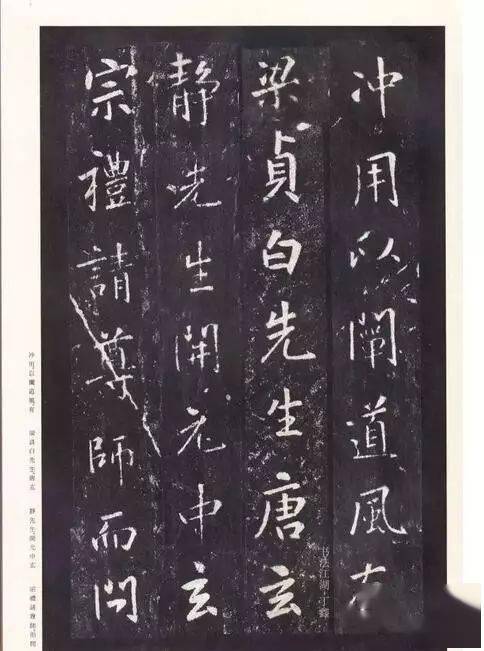 冲用以闡道風有
梁貞白先生唐玄
靜先生開元中玄
宗禮請尊師而問
书法江湖·丁鑫
冲用以闡道風有
梁貞白先生唐玄
靜先生開元中玄
宗禮請尊師而問